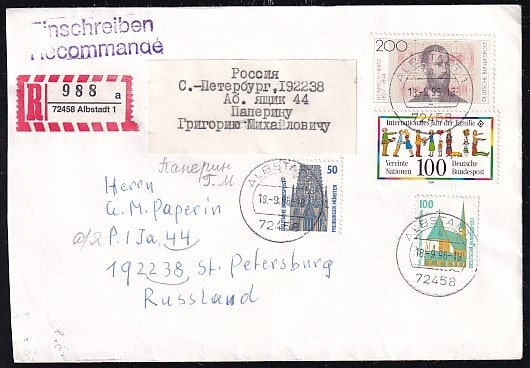 Einschreiben
Recommandé
R
988 a
72458 Albstadt 1
Россия
С.-Петербург,192238
Аб. ящик 44
Паперину
Григорию Михайловичу
200
DEUTSCHE BUNDESPOST
ALBSTADT
72458
Internationales Jahr der Familie
FAMILIE
Vereinte
Nationen
100
Deutsche
Bundespost
Паперин
Г.М
50
DEUTSCHE BUNDESPOST
FREIBURGER MÜNSTER
ALBSTADT
72458
100
DEUTSCHE BUNDESPOST
ALBSTADT
72458
Herrn
G.M. Paperin
а/я P.I Ja, 44
192238, St. Petersburg
Russland